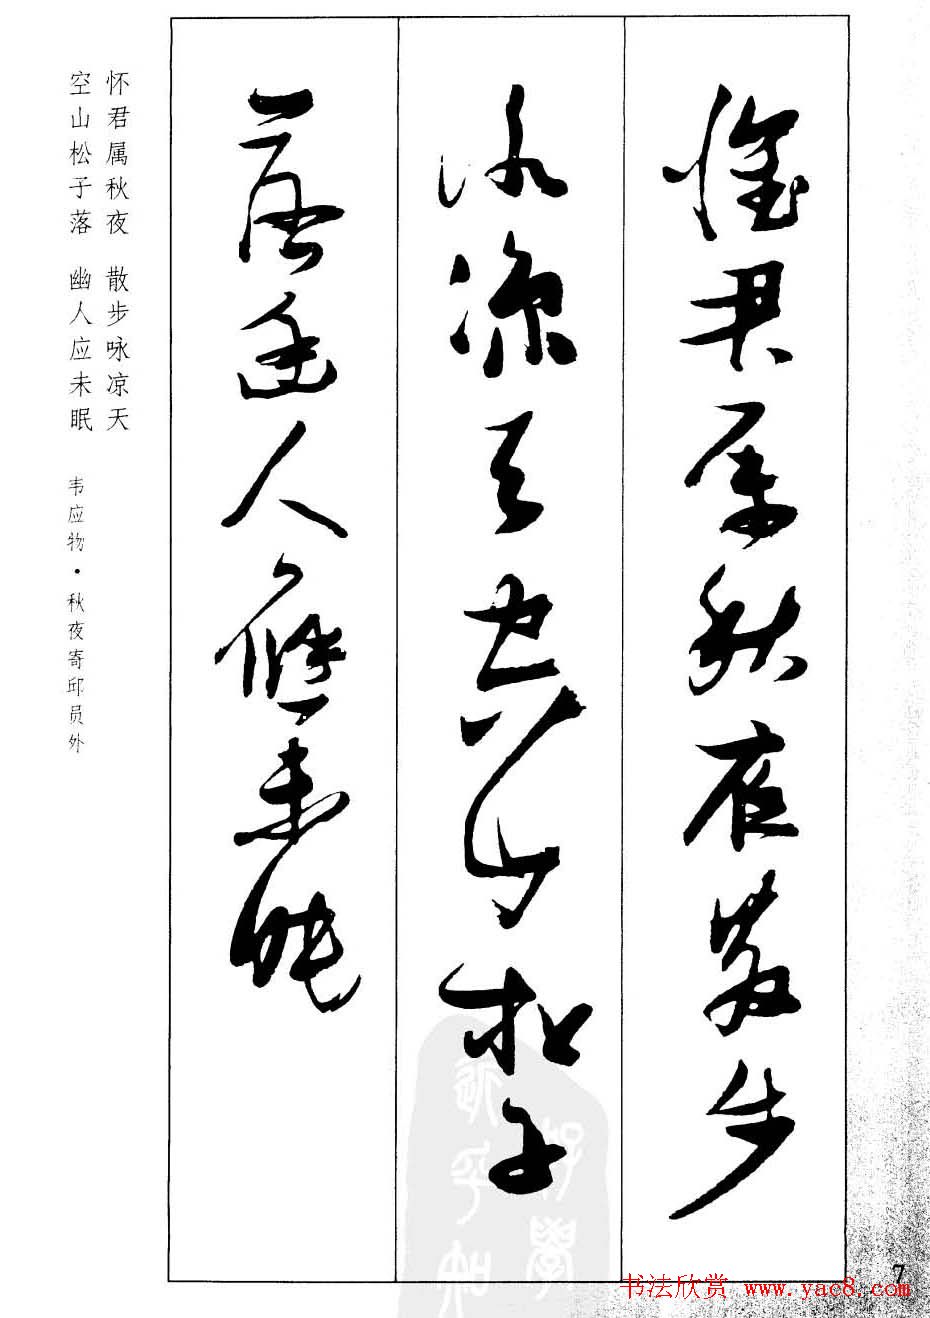 怀君属秋夜散步
咏凉天空山松子
落幽人应未眠
怀君属秋夜 散步咏凉天
空山松子落 幽人应未眠
韦应物·秋夜寄邱员外
7
书法欣赏 www.yac8.com